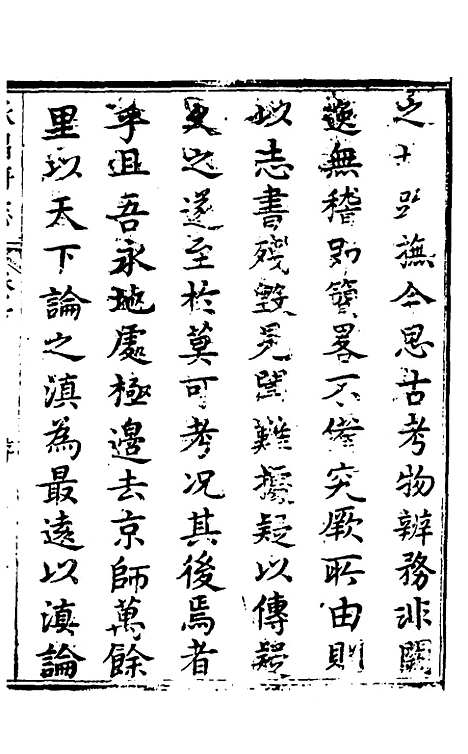 撫今思古考物辨務非闕
逸無稽則簡畧不俻究厥所由則
以志書殘毀見聞難據疑以傳疑
久之遂至於莫可考况其後焉者
乎且吾永地處極邊去京師萬餘
里以天下論之滇為最遠以滇論
永昌府志